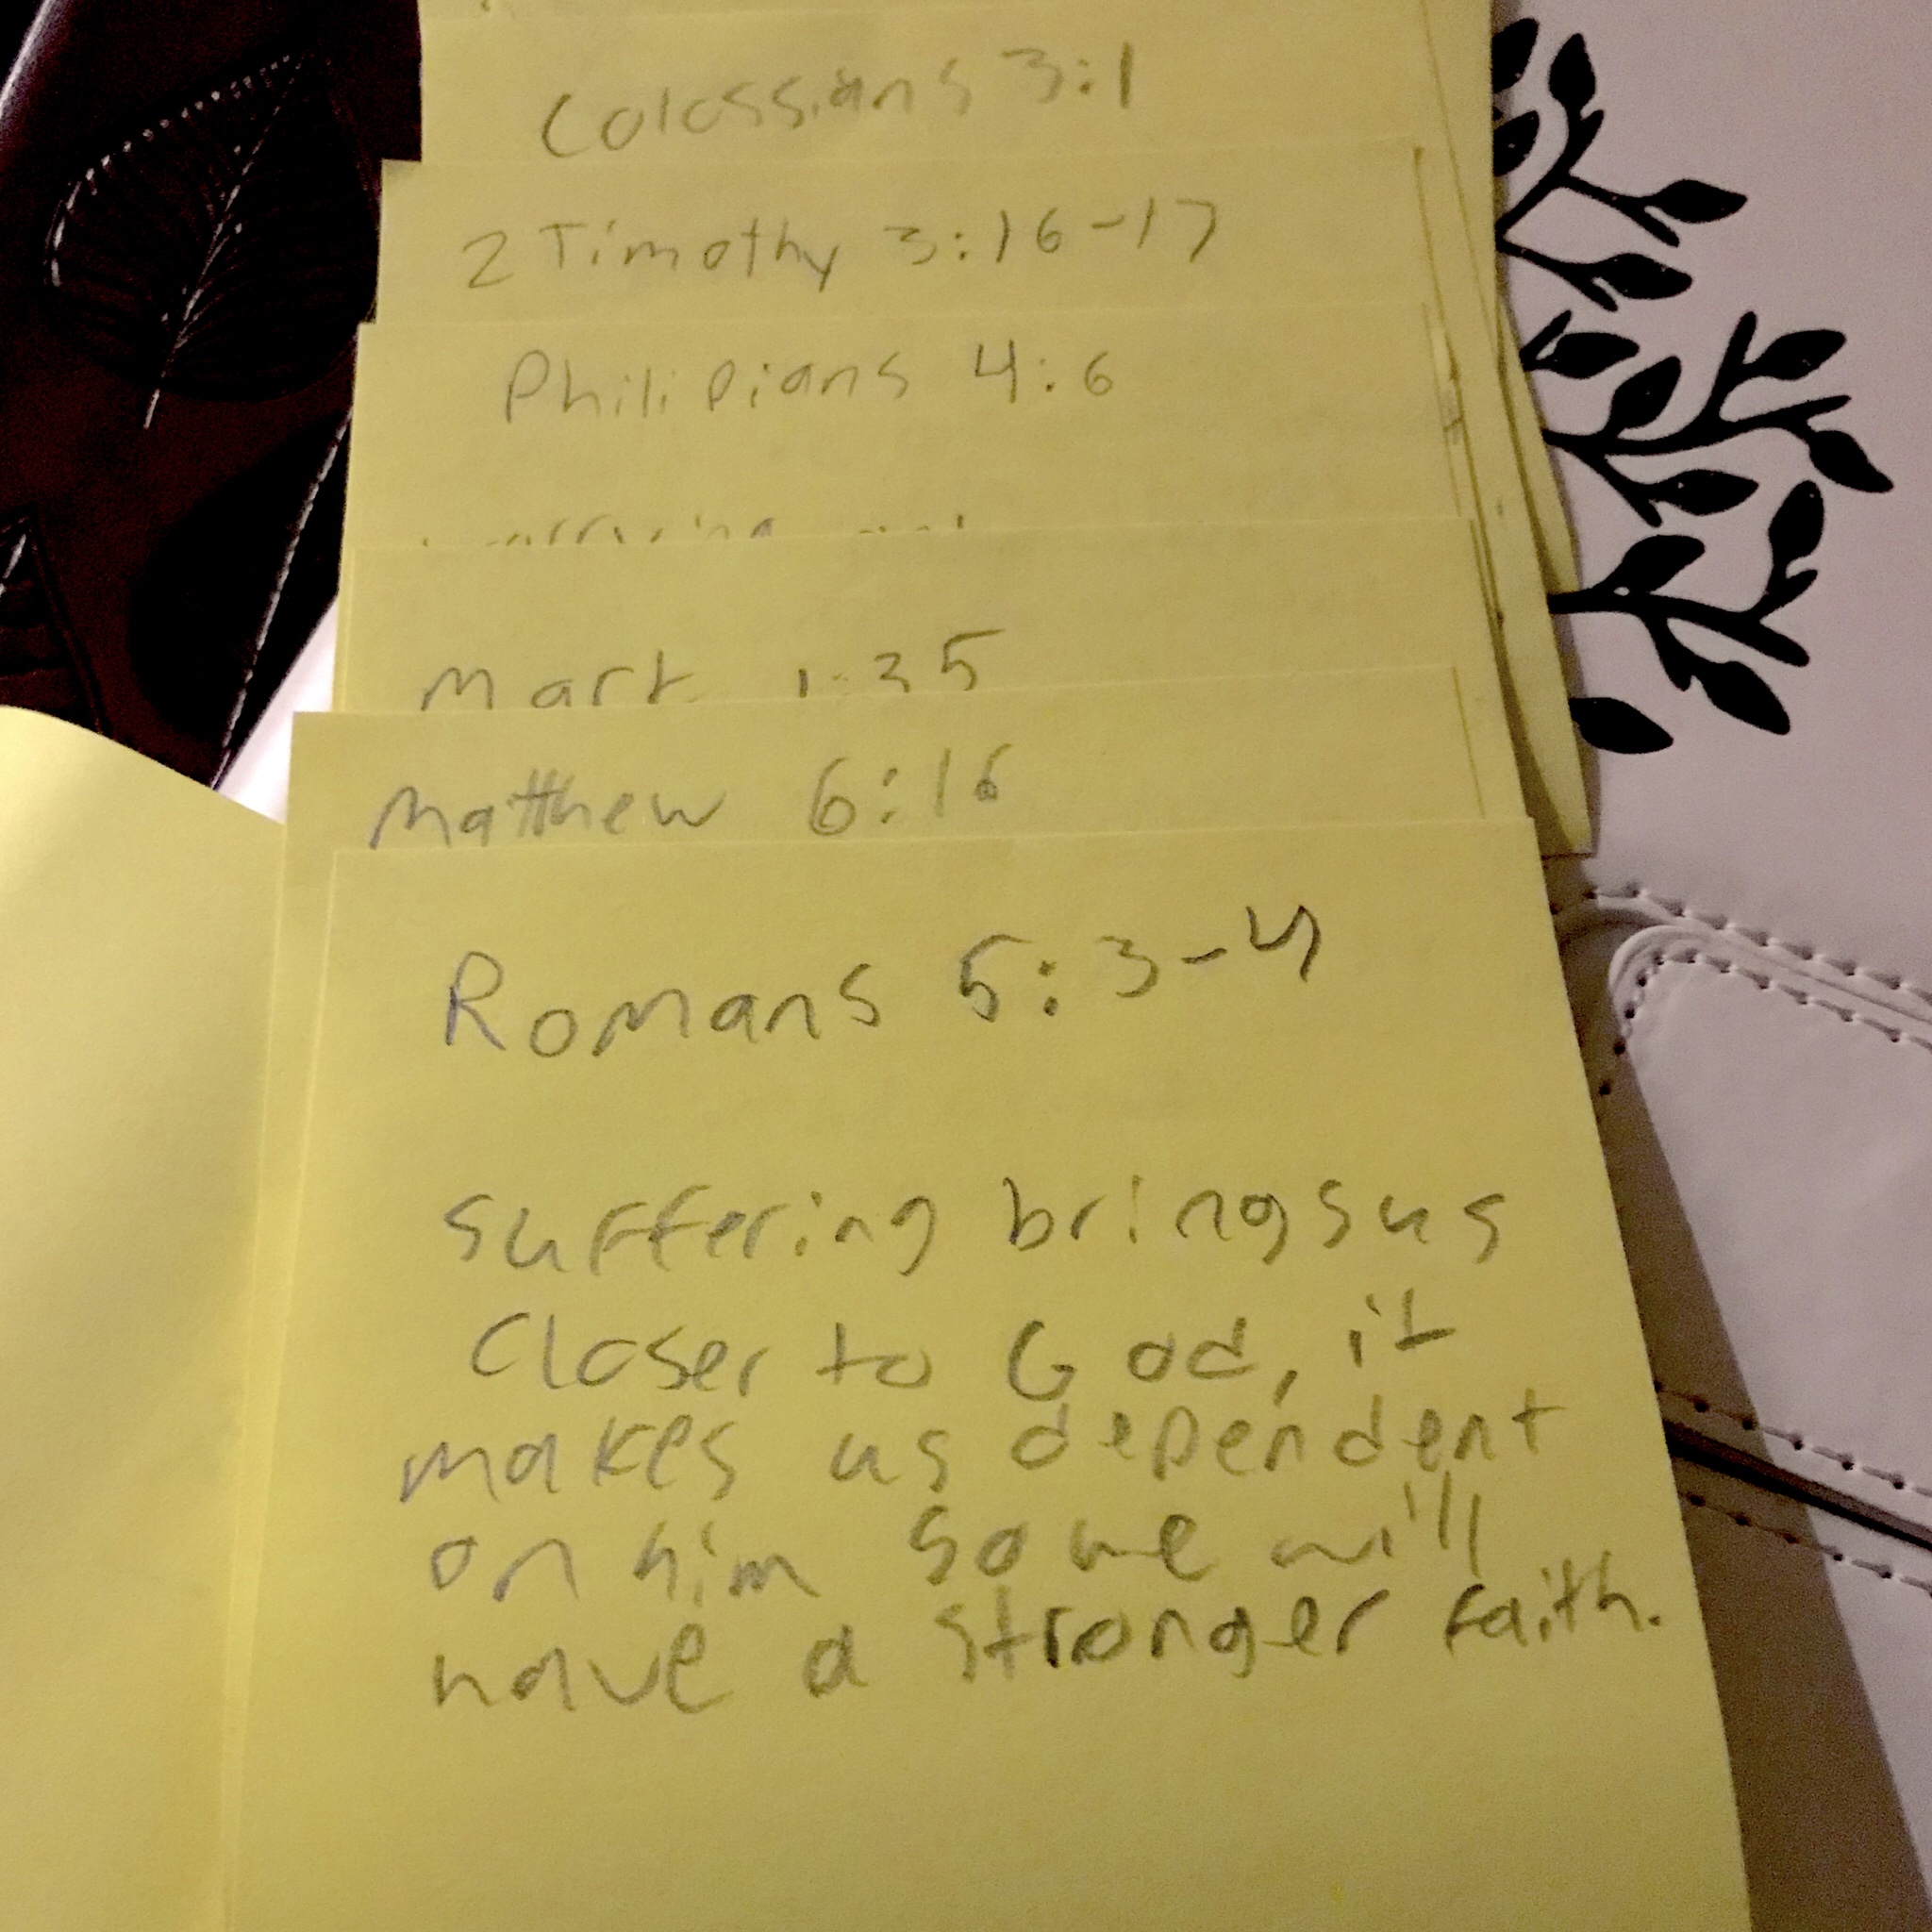 Colossians 3:1
2 Timothy 3:16-17
Philipians 4:6
Mark 1:35
Matthew 6:16
Romans 5:3-4
suffering brings us
Closer to God, it
makes us dependent
on him so we will
have a stronger faith.